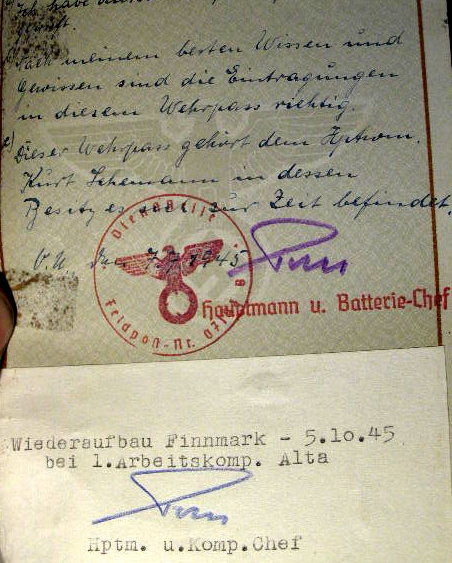 Ich habe
Nach meinem besten Wissen und
Gewissen sind die Eintragungen
in diesem Wehrpass richtig.
Dieser Wehrpass gehört dem Hptwm.
Kurt Schemann in dessen
Besitz es sich zur Zeit befindet.
O.U., den 7.7.1945
Dienststelle
Feldpost-Nr. 07
Hauptmann u. Batterie-Chef
Wiederaufbau Finnmark - 5.10.45
bei 1.Arbeitskomp. Alta
Hptm. u.Komp.Chef